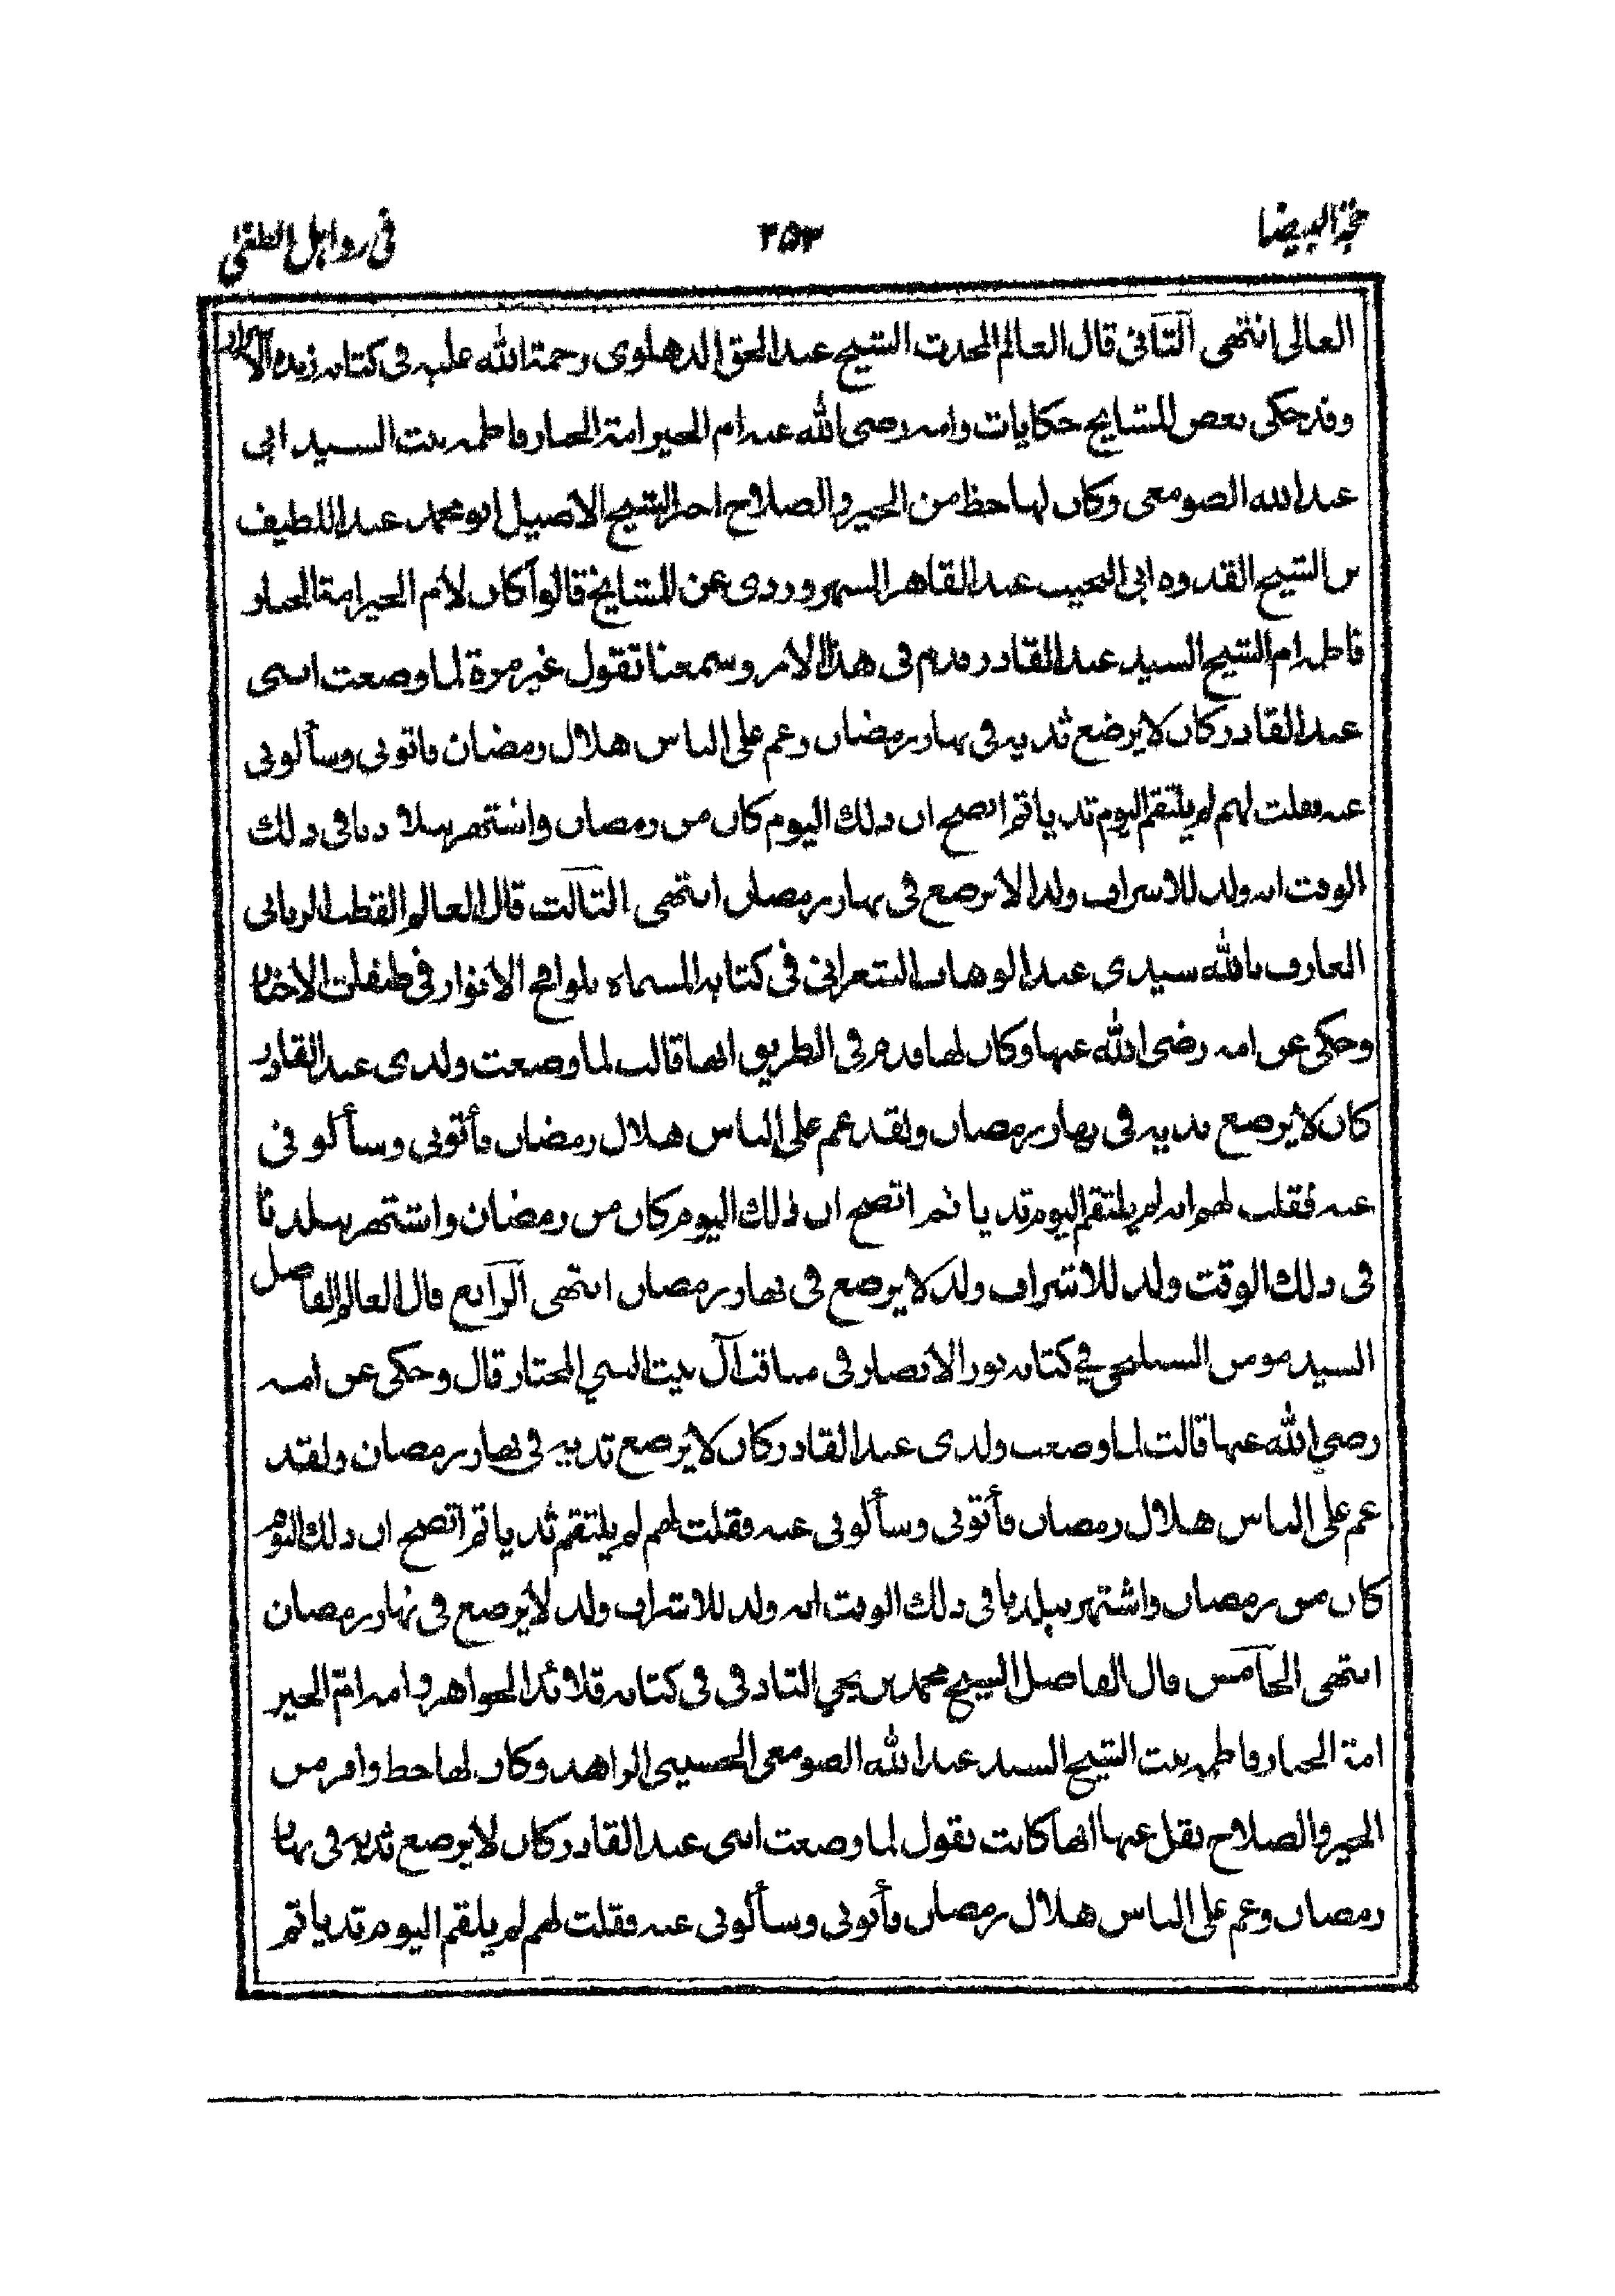 حجة البيضا ٣٥٣ فى رد اهل الطغى
العالى انتهى الثانى قال العالم المحدث الشيخ عبد الحق الدهلوى رحمة الله عليه فى كتابه زبدة الاسرار
وقد حكى بعض المشايخ حكايات وامه رضى الله عنه ام الخير امة الجبار فاطمه بنت السيد ابى
عبد الله الصومعى وكان لها حظ من الخير والصلاح اخبر الشيخ الاصيل ابو محمد عبد اللطيف
بن الشيخ القدوه ابى النجيب عبد القاهر السهروردى عن المشايخ قالوا كان لأم الخير امة الجبار
فاطمه ام الشيخ السيد عبد القادر قدم فى هذا الامر وسمعنا تقول غير مرة لما وضعت ابنى
عبد القادر كان لا يرضع ثديه فى نهار رمضان وغم على الناس هلال رمضان فاتونى وسألونى
عنه فقلت لهم لم يلتقم اليوم ثديا ثم اتضح ان ذلك اليوم كان من رمضان واشتهر ببلادنا فى ذلك
الوقت انه ولد للاشراف ولد لا يرضع فى نهار رمضان انتهى الثالث قال العالم القطب الربانى
العارف بالله سيدى عبد الوهاب الشعرانى فى كتابه المسماه بلواقح الانوار فى طبقات الاخيار
وحكى عن امه رضى الله عنها وكان لها قدم فى الطريق انها قالت لما وضعت ولدى عبد القادر
كان لا يرضع ثديه فى نهار رمضان ولقد غم على الناس هلال رمضان فأتونى وسألونى
عنه فقلت لهم انه لم يلتقم اليوم ثديا ثم اتضح ان ذلك اليوم كان من رمضان واشتهر ببلدنا
فى ذلك الوقت ولد للاشراف ولد لا يرضع فى نهار رمضان انتهى الرابع قال العالم الفاضل
السيد مومن الشبلنجى في كتابه نور الابصار فى مناقب آل بيت النبي المختار قال وحكى عن امه
رضي الله عنها قالت لما وضعت ولدى عبد القادر كان لا يرضع ثديه فى نهار رمضان ولقد
غم على الناس هلال رمضان فأتونى وسألونى عنه فقلت لهم لم يلتقم ثديا ثم اتضح ان ذلك اليوم
كان من رمضان واشتهر ببلدنا فى ذلك الوقت انه ولد للاشراف ولد لا يرضع فى نهار رمضان
انتهى الخامس قال الفاضل الشيخ محمد بن يحي التادفى فى كتابه قلائد الجواهر وامه ام الخير
امة الجبار فاطمه بنت الشيخ السيد عبد الله الصومعى الحسينى الزاهد وكان لها حظ وافر من
الخير والصلاح نقل عنها انها كانت تقول لما وضعت ابنى عبد القادر كان لا يرضع ثديه فى نهار
رمضان وغم على الناس هلال رمضان فأتونى وسألونى عنه فقلت لهم لم يلقم اليوم ثديا ثم